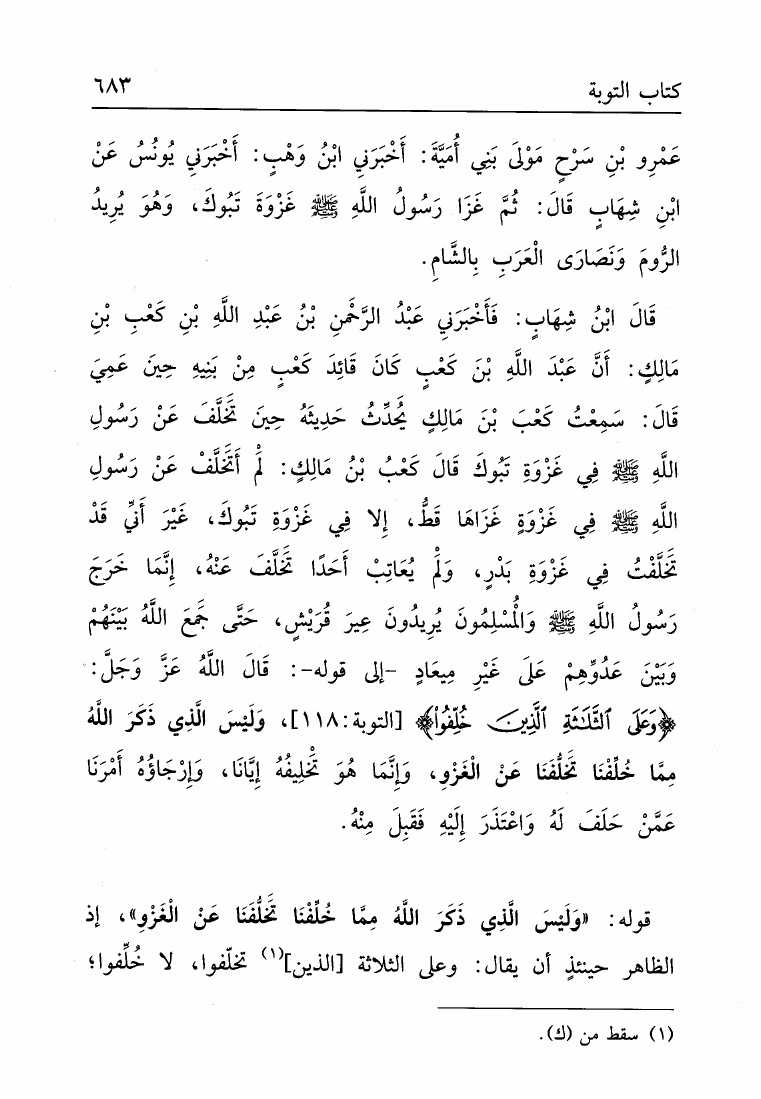 كتاب التوبة ٦٨٣
عَمْرِو بْنِ سَرْحٍ مَوْلَى بَنِي أُمَيَّةَ: أَخْبَرَنِي ابْنُ وَهْبٍ: أَخْبَرَنِي يُونُسُ عَنْ
ابْنِ شِهَابٍ قَالَ: ثُمَّ غَزَا رَسُولُ اللَّهِ ﷺ غَزْوَةَ تَبُوكَ، وَهُوَ يُرِيدُ
الرُّومَ وَنَصَارَى الْعَرَبِ بِالشَّامِ.
قَالَ ابْنُ شِهَابٍ: فَأَخْبَرَنِي عَبْدُ الرَّحْمَنِ بْنُ عَبْدِ اللَّهِ بْنِ كَعْبِ بْنِ
مَالِكٍ: أَنَّ عَبْدَ اللَّهِ بْنَ كَعْبٍ كَانَ قَائِدَ كَعْبٍ مِنْ بَنِيهِ حِينَ عَمِيَ
قَالَ: سَمِعْتُ كَعْبَ بْنَ مَالِكٍ يُحَدِّثُ حَدِيثَهُ حِينَ تَخَلَّفَ عَنْ رَسُولِ
اللَّهِ ﷺ فِي غَزْوَةِ تَبُوكَ قَالَ كَعْبُ بْنُ مَالِكٍ: لَمْ أَتَخَلَّفْ عَنْ رَسُولِ
اللَّهِ ﷺ فِي غَزْوَةٍ غَزَاهَا قَطُّ، إِلا فِي غَزْوَةِ تَبُوكَ، غَيْرَ أَنِّي قَدْ
تَخَلَّفْتُ فِي غَزْوَةِ بَدْرٍ، وَلَمْ يُعَاتِبْ أَحَدًا تَخَلَّفَ عَنْهُ، إِنَّمَا خَرَجَ
رَسُولُ اللَّهِ ﷺ وَالْمُسْلِمُونَ يُرِيدُونَ عِيرَ قُرَيْشٍ، حَتَّى جَمَعَ اللَّهُ بَيْنَهُمْ
وَبَيْنَ عَدُوِّهِمْ عَلَى غَيْرِ مِيعَادٍ -إلى قوله-: قَالَ اللَّهُ عَزَّ وَجَلَّ:
﴿وَعَلَى ٱلثَّلَٰثَةِ ٱلَّذِينَ خُلِّفُوا۟﴾ [التوبة:١١٨]، وَلَيْسَ الَّذِي ذَكَرَ اللَّهُ
مِمَّا خُلِّفْنَا تَخَلُّفَنَا عَنْ الْغَزْوِ، وَإِنَّمَا هُوَ تَخْلِيفُهُ إِيَّانَا، وَإِرْجَاؤُهُ أَمْرَنَا
عَمَّنْ حَلَفَ لَهُ وَاعْتَذَرَ إِلَيْهِ فَقَبِلَ مِنْهُ.
قوله: «وَلَيْسَ الَّذِي ذَكَرَ اللَّهُ مِمَّا خُلِّفْنَا تَخَلُّفَنَا عَنْ الْغَزْوِ»، إذ
الظاهر حينئذٍ أن يقال: وعلى الثلاثة [الذين](١) تخلّفوا، لا خُلِّفوا؛
(١) سقط من (ك).